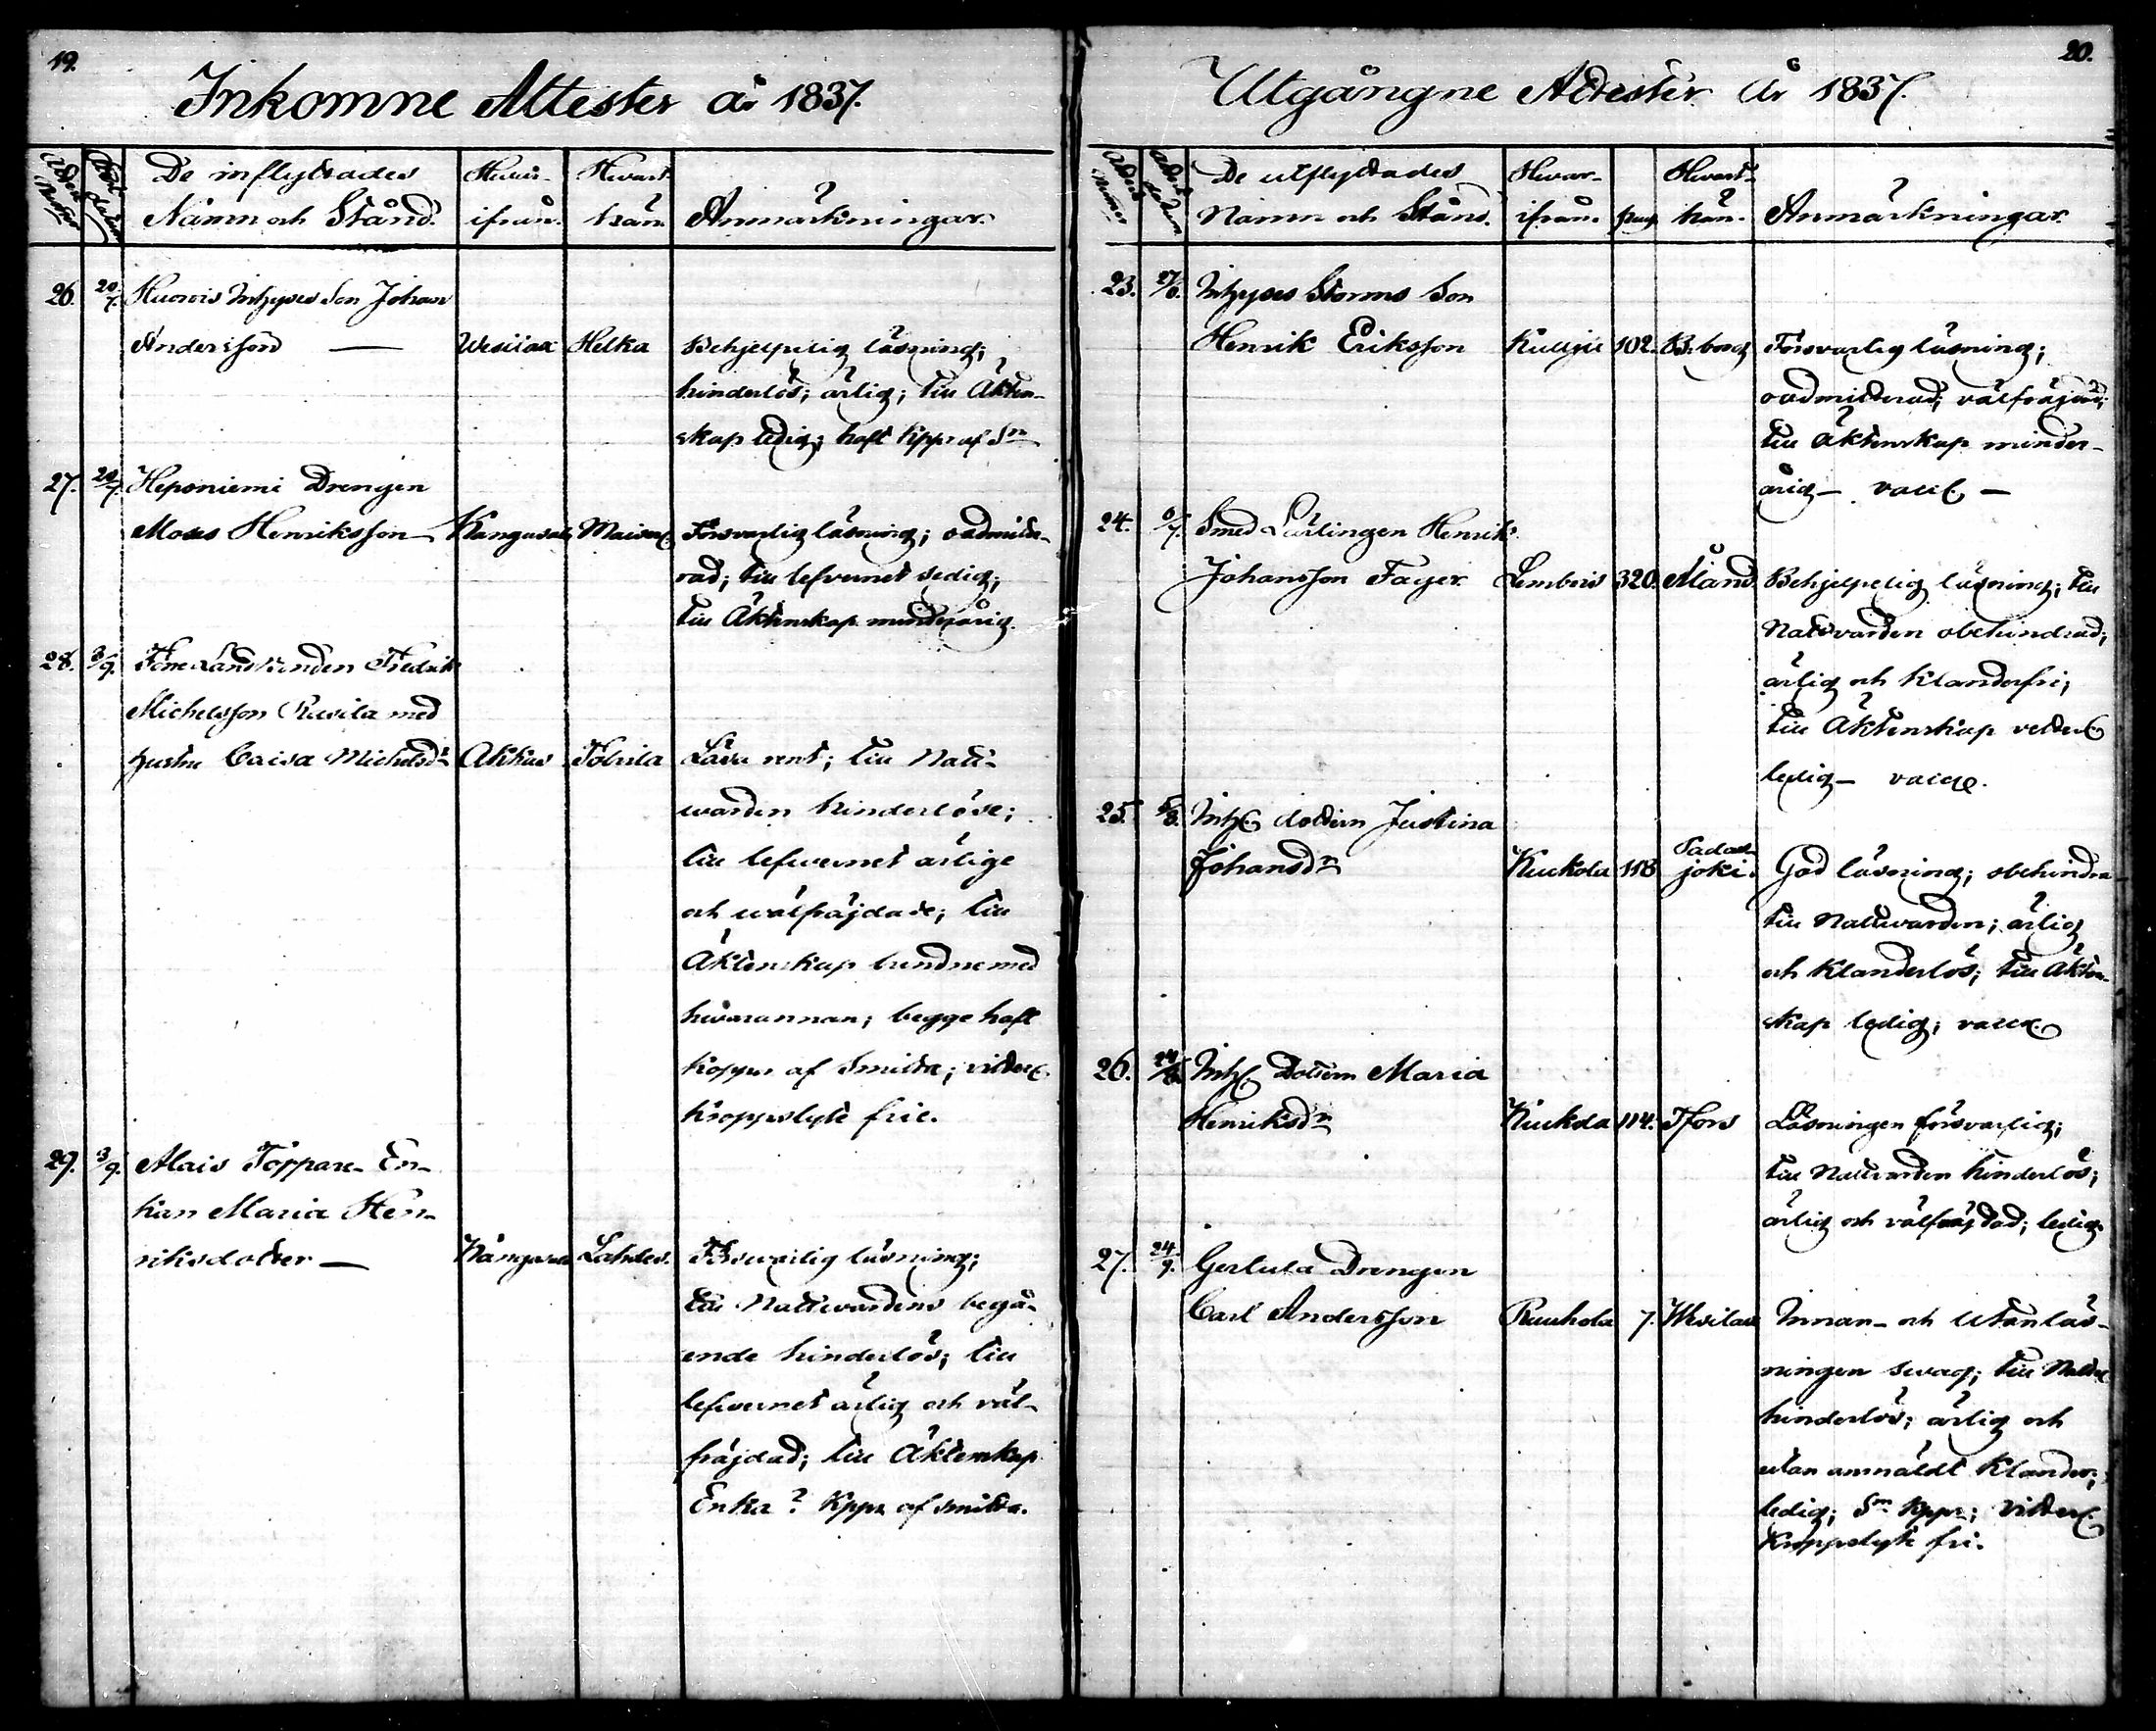 19.
Inkomne Attester år 1837.
Attest Numer
Attest datum
De inflyttades
Namn och Stånd.
Hvar-
ifrån.
Hvart-
hän.
Anmärkningar.
26. 20/7. Huovis Inhyses Son Johan
Andersson — Wesilax Helka Behjelpelig läsning;
hinderlös; ärlig; till Äkten-
skap ledig; haft kppr af Sm
27. 20/7. Heponiemi Drengen
Moses Henriksson Kangasala Försvarlig läsning; oadmitte-
rad; till lefvernet sedig;
till Äktenskap minderårig.
28. 3/9. Landbonden Fredrik
Michelsson med
hustru Caisa Michelsdr Akkas Läsa rent; till Natt-
warden hinderlöse;
till lefwernet ärlige
och wälfräjdade; till
Äktenskap bundne med
hwarannan; begge haft
koppor af Smitta; vidare
kroppslyte frie.
29. 3/9. Alais Enkan Maria Hen-
riksdotter — Kangasala Lahdes. Förswarlig läsning;
till Nattwardens begå-
ende hinderlös; till
lefwernet ärlig och väl-
fräjdad; till Äktenskap
Enka? Kppr af smitta.
20.
Utgångne Attester År 1837.
Attest Numer
Attest datum
De utflyttades
Namn och Stånd.
Hvar-
ifrån.
pag.
Hvart-
hän.
Anmärkningar.
23. 27/6. Inhyses Storms Son
Henrik Eriksson Kulju 102. B:borg Försvarlig läsning;
oadmitterad; välfräjdad;
till Äktenskap minder-
årig — vacc. —
24. 6/7. Smed Lärlingen Henrik
Johansson Fager Lembois 320. Åland. Behjelpelig läsning; till
Nattvarden obehindrad;
ärlig och klanderfri;
till Äktenskap vetterl.
ledig — vacce.
25. 5/8. Inh. dottern Justina
Johansdr Kuckola 118 Padas-
joki. God läsning; obehindrad
till Nattwarden; ärlig
och klanderlös; till Äkten-
skap ledig; vacce.
26. 24/8. Inh. Dottern Maria
Henriksdr Kuckola 114. Tfors Läsningen försvarlig;
till Nattvarden hinderlös;
ärlig och välfräjdad; ledig.
27. 24/9. Gerlula Drengen
Carl Andersson 7. Wesilax Innan- och Utanläs-
ningen swag; till Nattv.
hinderlös; ärlig och
utan anmäldt klander;
ledig; Sm kppr; vidare
kroppslyte fri.